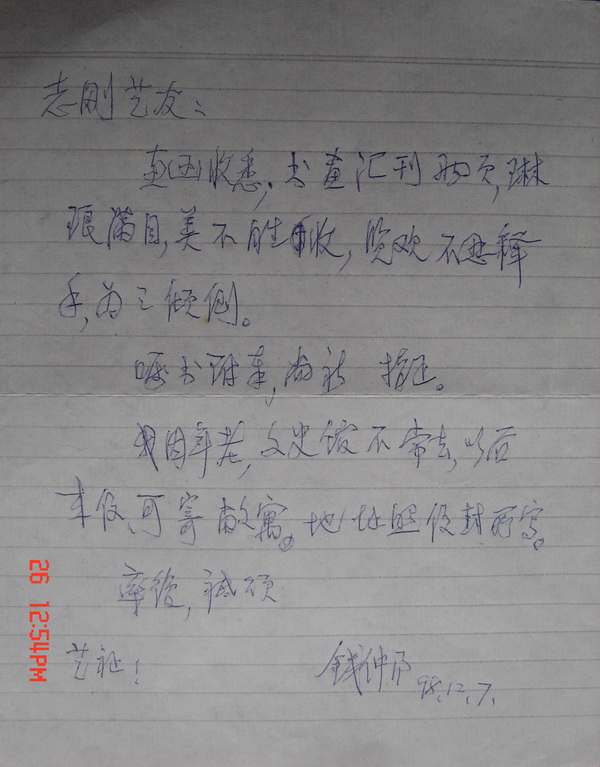 志刚艺友：
惠函收悉，书画汇刊两页，琳
琅满目，美不胜收，览欢不忍释
手，为之倾倒。
嘱书附奉，尚祈 指正。
我因年老，文史馆不常去，以后
来信，可寄敝寓。地址照信封所写。
率复，诚颂
艺祉！
钱仲 98.12.7.
26 12:54PM